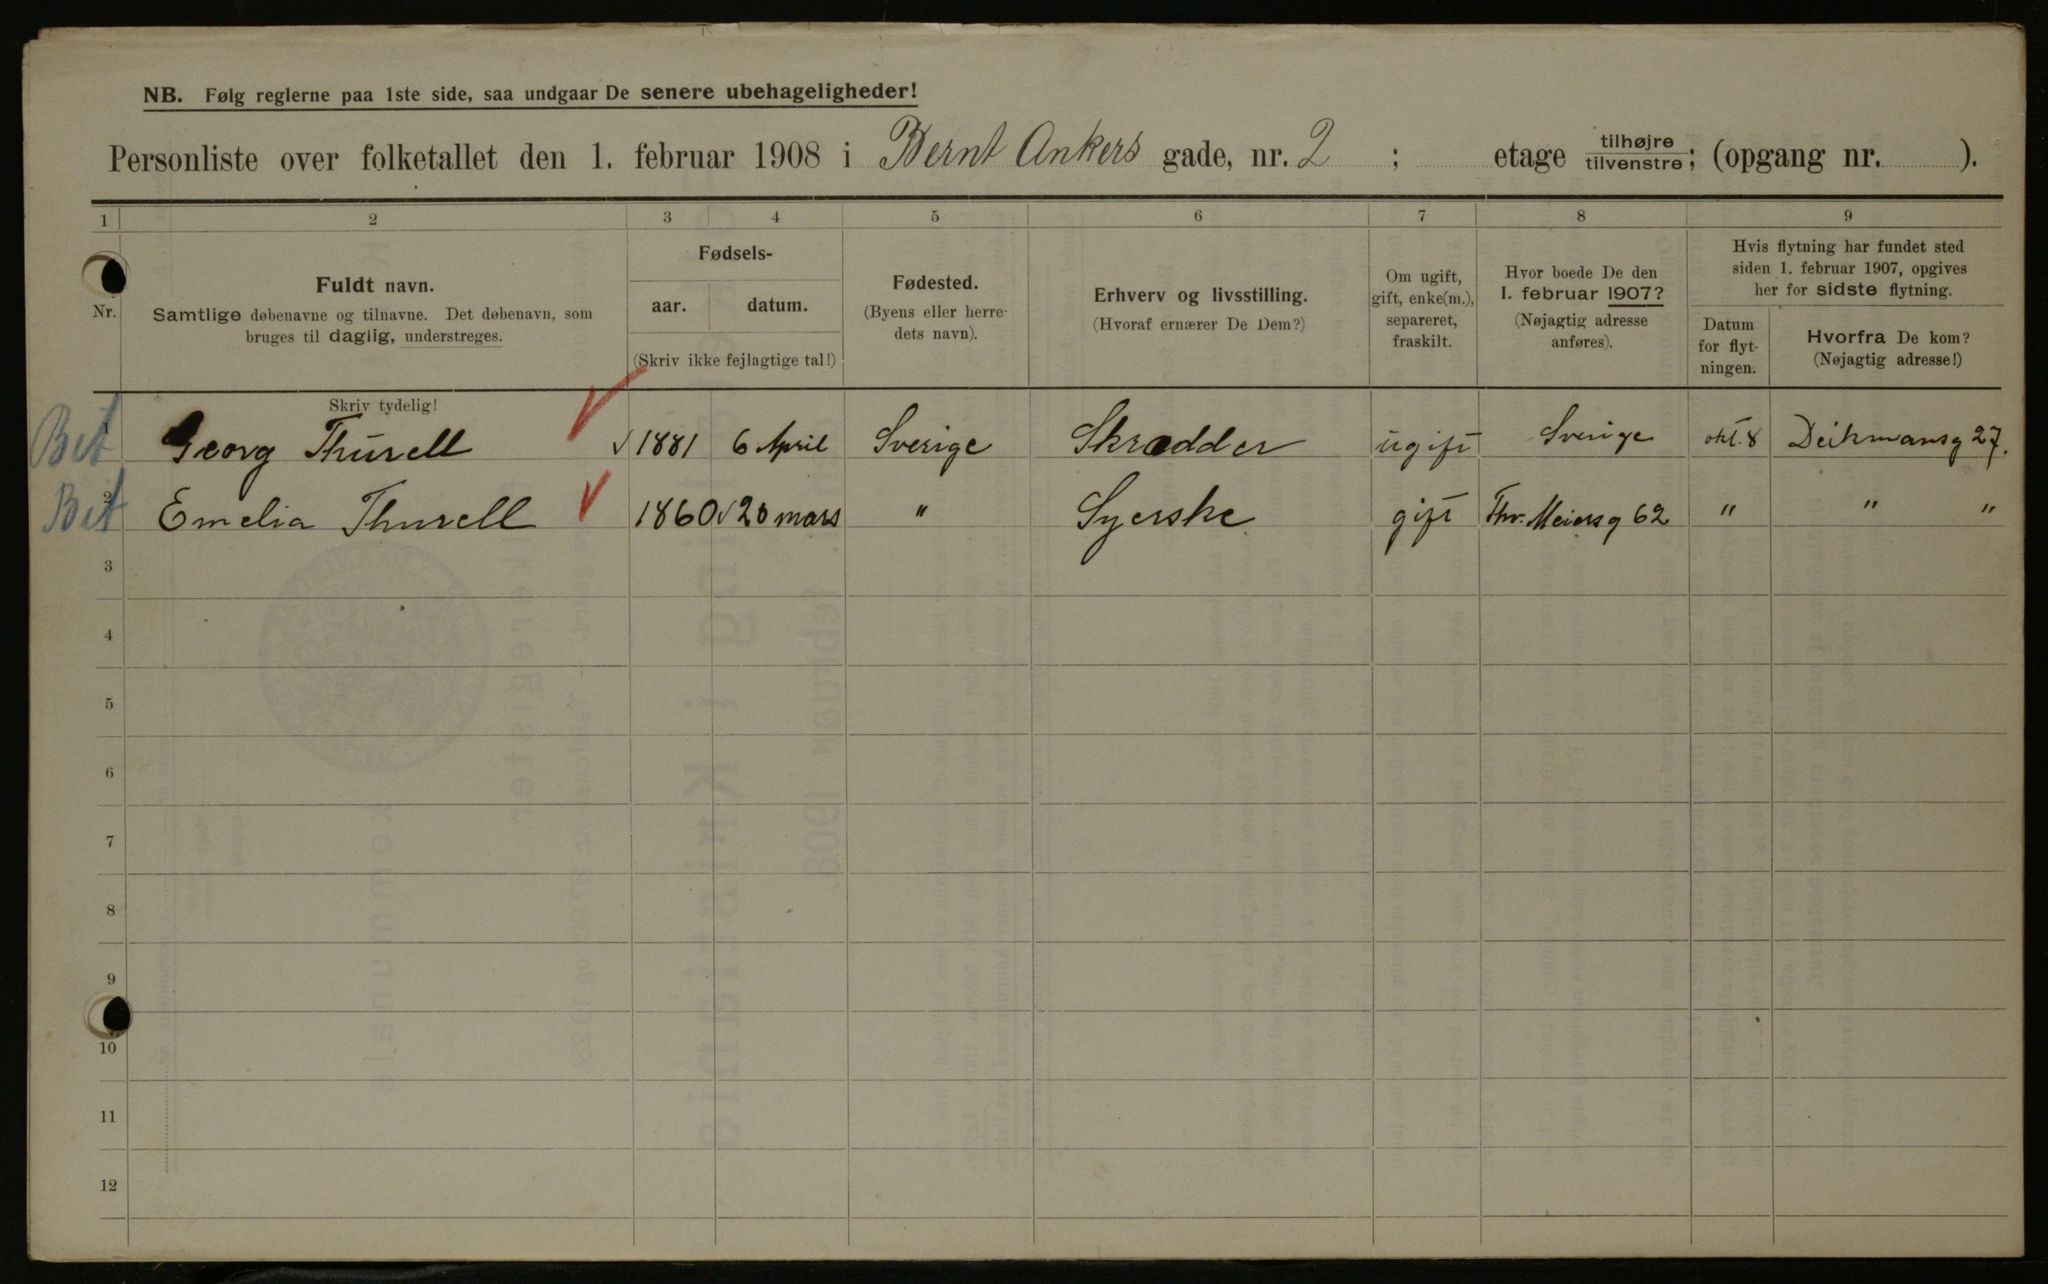 NB. Følg reglerne paa 1ste side, saa undgaar De senere ubehageligheder!
Personliste over folketallet den 1. februar 1908 i Bernt Ankers gade, nr. 2 ; etage tilhøjre tilvenstre; (opgang nr. ).
1 2 3 4 5 6 7 8 9
Nr.
Fuldt navn.
Samtlige døbenavne og tilnavne. Det døbenavn, som
bruges til daglig, understreges.
Fødsels-
aar. datum.
(Skriv ikke fejlagtige tal!)
Fødested.
(Byens eller herre-
dets navn).
Erhverv og livsstilling.
(Hvoraf ernærer De Dem?)
Om ugift,
gift, enke(m.),
separeret,
fraskilt.
Hvor boede De den
1. februar 1907?
(Nøjagtig adresse
anføres).
Hvis flytning har fundet sted
siden 1. februar 1907, opgives
her for sidste flytning.
Datum
for flyt-
ningen.
Hvorfra De kom?
(Nøjagtig adresse!)
Skriv tydelig!
Bet 1 Georg Thurell 1881 6 April Sverige Skrædder ugift Sverige okt. 8 Deikmansg 27.
Bet 2 Emelia Thurell 1860 20 mars " Syerske gift Thv. Meiersg 62 " " "
3
4
5
6
7
8
9
10
11
12